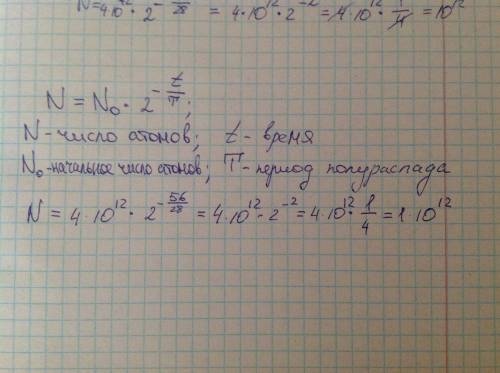 N=4·10¹²·2^(-56/28) = 4·10¹²·2⁻² = 4·10¹²·1/4 = 10¹²
N = N₀·2^(-t/T);
N-число атомов; t-время
N₀-начальное число атомов; T-период полураспада
N = 4·10¹²·2^(-56/28) = 4·10¹²·2⁻² = 4·10¹²·1/4 = 1·10¹²